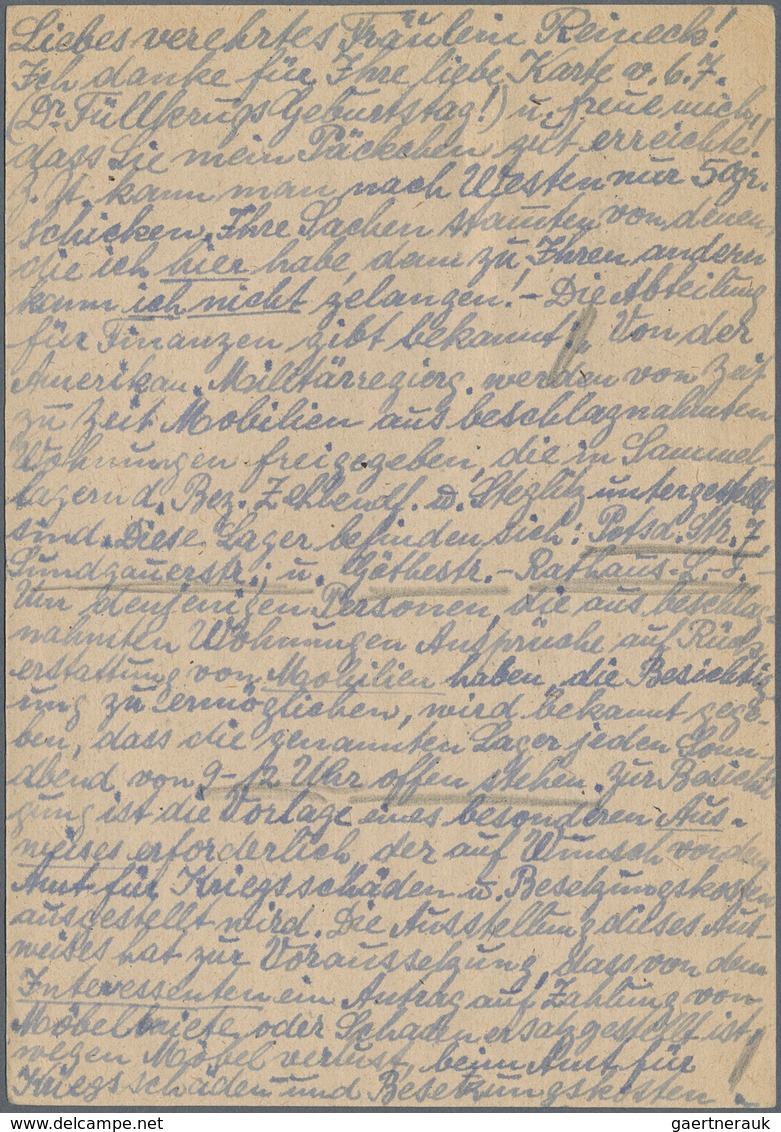 Liebes verehrtes Fräulein Reineck!
Ich danke für Ihre liebe Karte v. 6.7.
(Dr. Füllkrugs Geburtstag!) u. freue mich,
dass Sie mein Päckchen gut erreichte!
Z. Zt. kann man nach Westen nur 50 gr.
schicken. Ihre Sachen stammten von denen,
die ich hier habe, denn zu Ihren andern
kann ich nicht gelangen! - Die Abteilung
für Finanzen gibt bekannt: „Von der
Amerikan. Militärregierg. werden von Zeit
zu Zeit Mobilien aus beschlagnahmten
Wohnungen freigegeben, die in Sammel-
lagern d. Bez. Zehlendf. u. Steglitz untergestellt
sind. Diese Lager befinden sich: Potsd. Str. 7
Sundgauerstr.; u. Göthestr. - Rathaus
Um denjenigen Personen, die aus beschlag-
nahmten Wohnungen Ansprüche auf Rück-
erstattung von Mobilien haben, die Besichtig
ung zu ermöglichen, wird bekannt gege-
ben, dass die genannten Lager jeden Sonn-
abend von 9-12 Uhr offen stehen. Zur Besichti
gung ist die Vorlage eines besonderen Aus-
weises erforderlich, der auf Wunsch von dem
Amt für Kriegsschäden u. Besetzungskosten
ausgestellt wird. Die Ausstellung dieses Aus-
weises hat zur Voraussetzung, dass von dem
Interessenten ein Antrag auf Zahlung von
Möbelmiete oder Schadenersatz gestellt ist,
wegen Möbelverlust, beim Amt für
Kriegsschäden und Besetzungskosten -
gaertnerauk